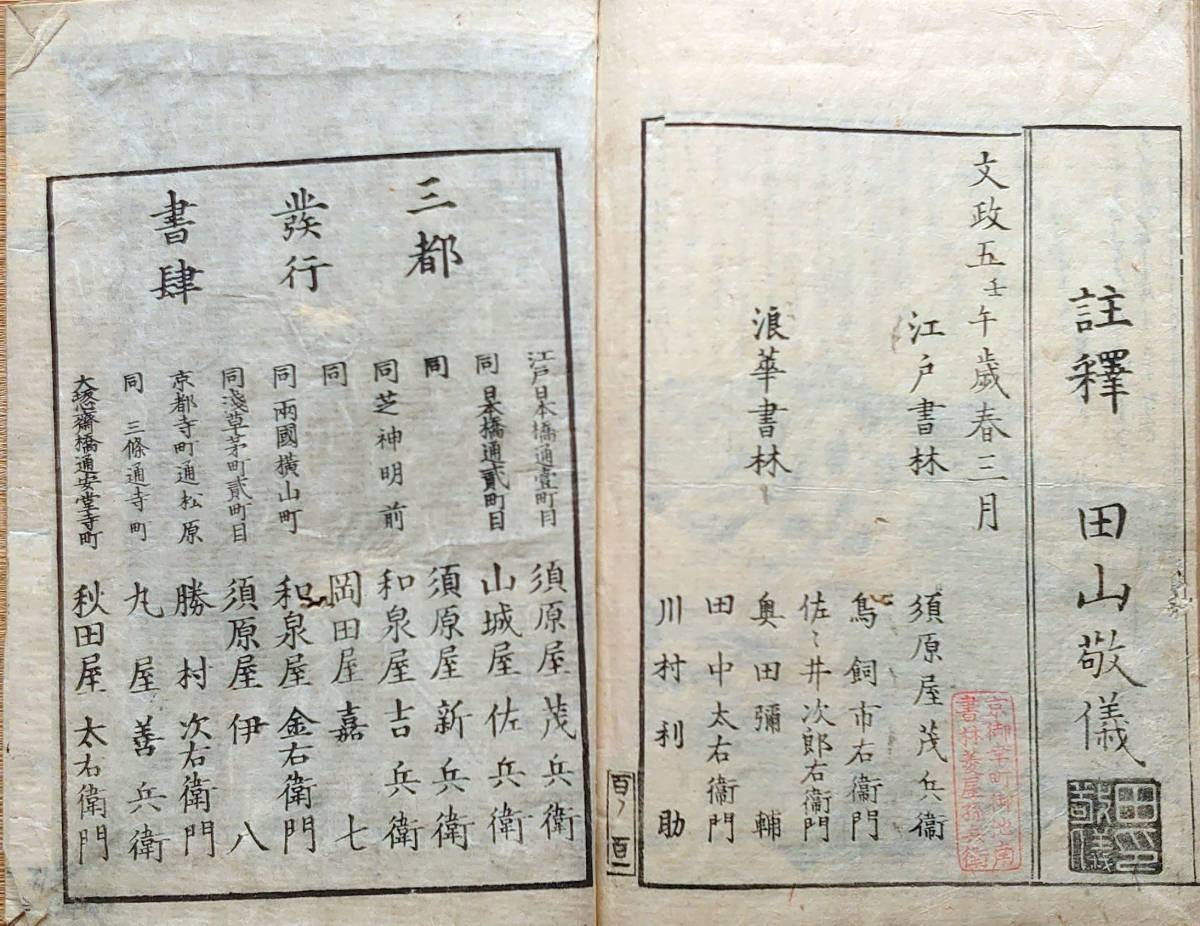 註釋 田山敬儀
田印敬儀
文政五壬午歳春三月
江戸書林 須原屋茂兵衞
鳥飼市右衞門
佐々井次郎右衞門
浪華書林 奥田彌輔
田中太右衞門
川村利助
京御幸町御池南
書林菱屋孫兵衛
百ノ百一
三都
發行
書肆
江戸日本橋通壹町目 須原屋茂兵衛
同 日本橋通貳町目 山城屋佐兵衛
同 須原屋新兵衛
同 芝神明前 和泉屋吉兵衛
同 岡田屋嘉七
同 兩國横山町 和泉屋金右衛門
同 淺草茅町貳町目 須原屋伊八
京都寺町通松原 勝村次右衛門
同 三條通寺町 丸屋善兵衛
大坂心齋橋通安堂寺町 秋田屋太右衛門